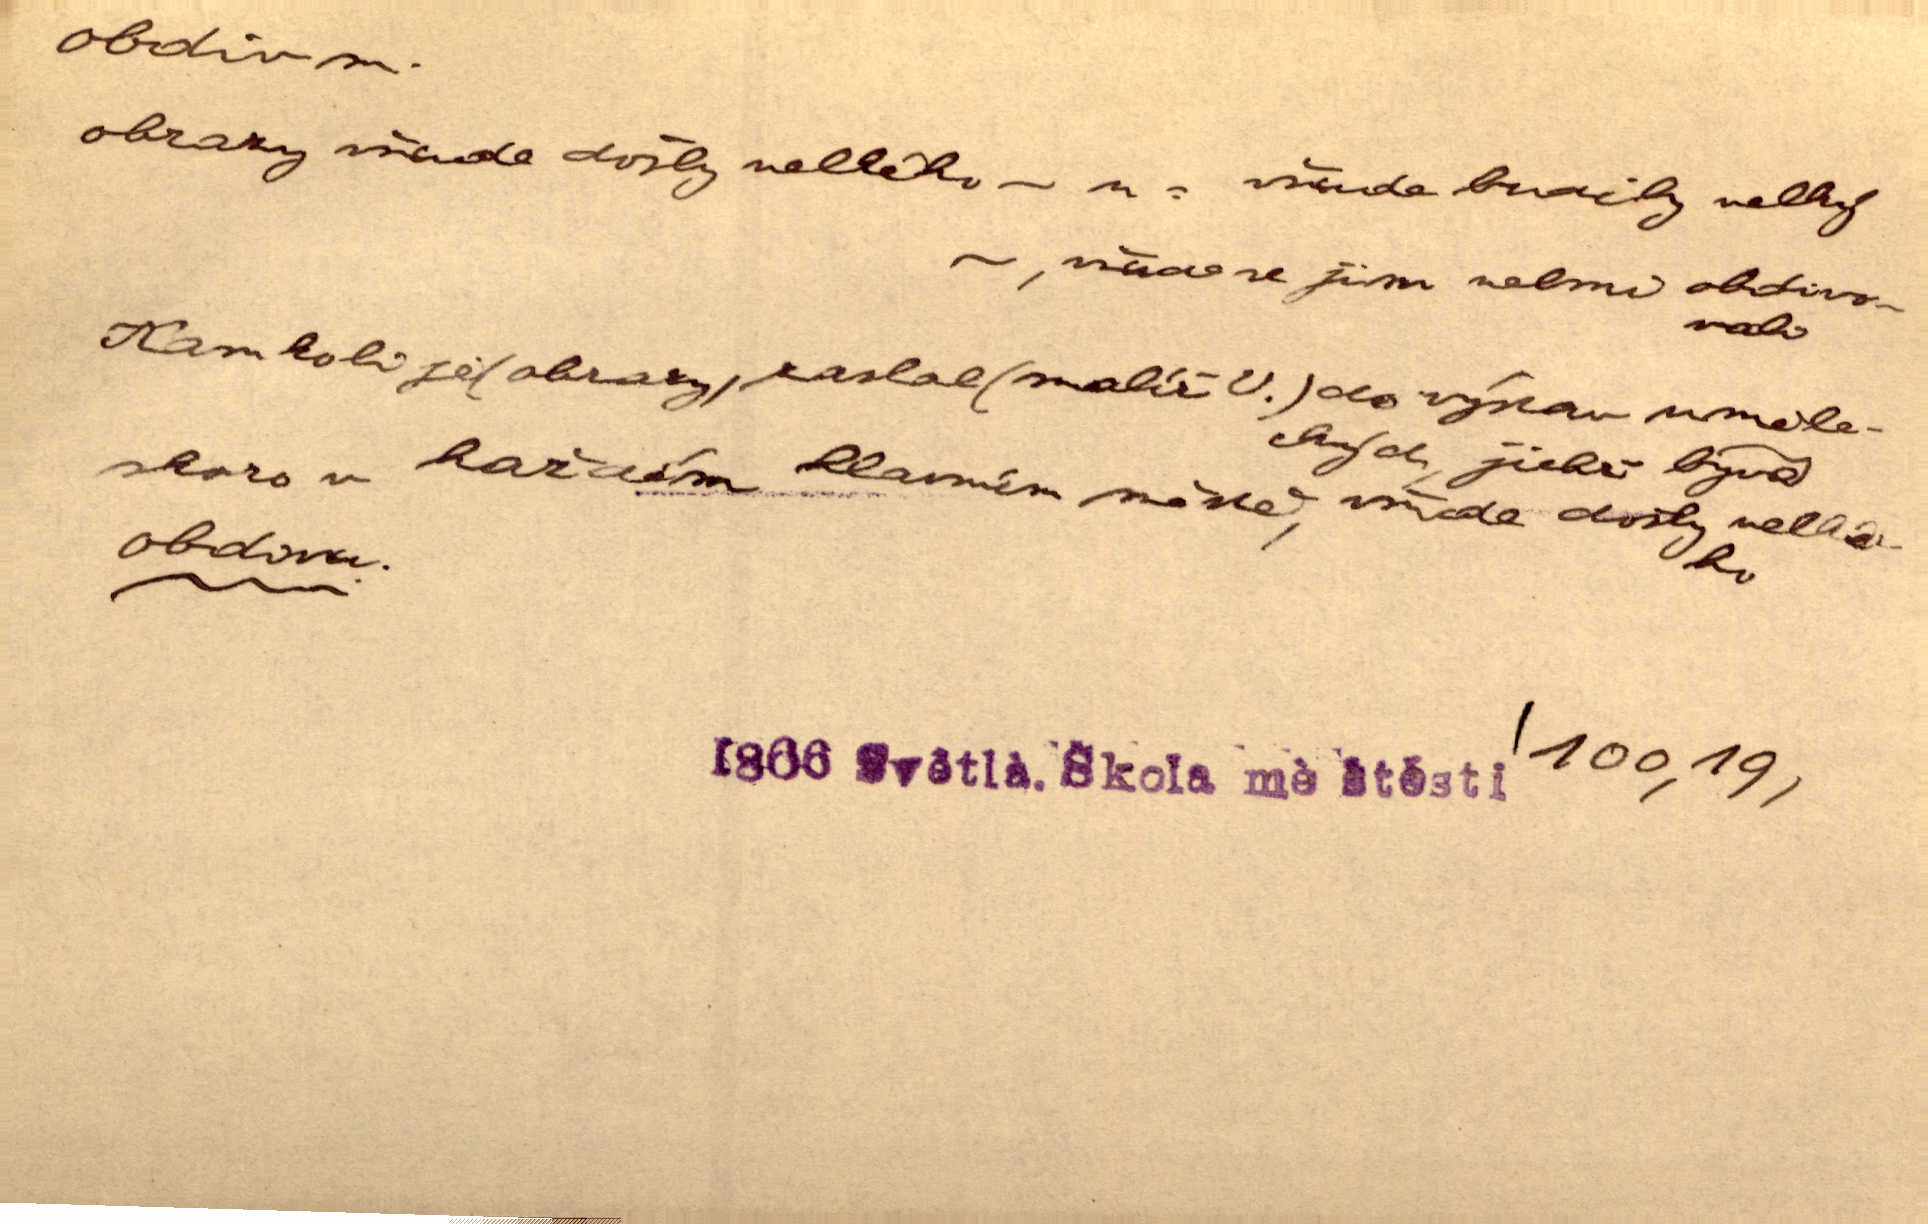 obdiv m.
obrazy všude došly velkého ~ u = všude budily velký
~, všude se jim velmi obdivo-
vali
Kamkoli je (obrazy) zaslal (malíř V.) do výstav uměle-
ckých, jichž bývá
skoro v každém hlavním městě, všude došly velké-
ho
obdivu.
1866 Světlá. Škola mé štěstí 100, 19,